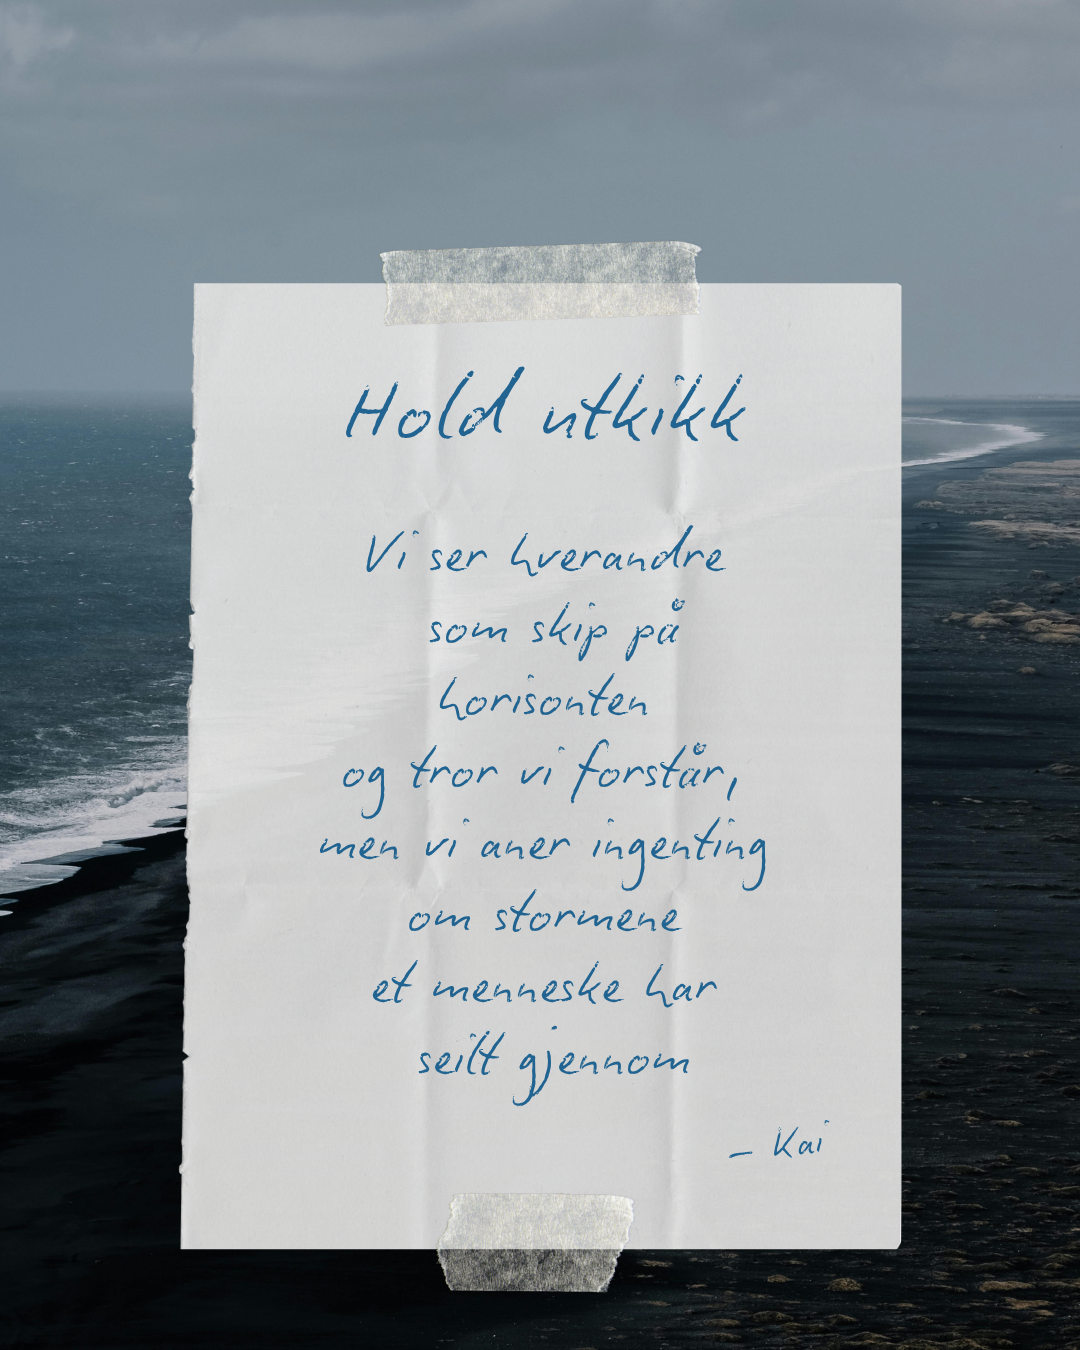 Hold utkikk
Vi ser hverandre
som skip på
horisonten
og tror vi forstår,
men vi aner ingenting
om stormene
et menneske har
seilt gjennom
– Kai